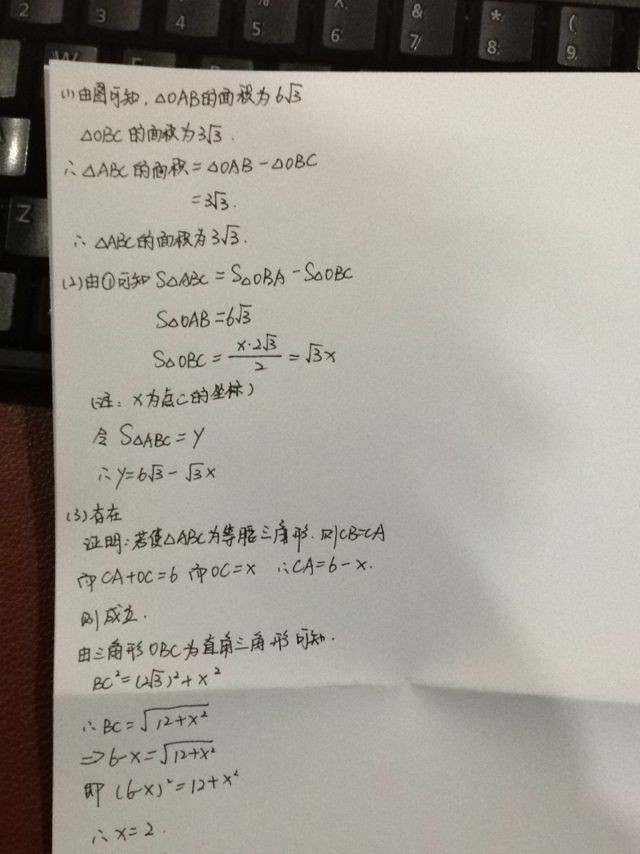 2 3 4 5 6 & 7 * 8 ( 9
W
Z
(1)由图可知,△OAB的面积为6√3
△OBC的面积为3√3.
∴△ABC的面积=△OAB-△OBC
=3√3.
∴△ABC的面积为3√3.
(2)由①可知 S△ABC=S△OBA-S△OBC
S△OAB=6√3
S△OBC=x·2√3/2=√3x
(注:x为点C的坐标)
令 S△ABC=y
∴y=6√3-√3x
(3)存在
证明:若使△ABC为等腰三角形.则CB=CA
而CA+OC=6 而OC=x ∴CA=6-x.
则成立.
由三角形OBC为直角三角形可知.
BC²=(2√3)²+x²
∴BC=√12+x²
=>6-x=√12+x²
即(6-x)²=12+x²
∴x=2.